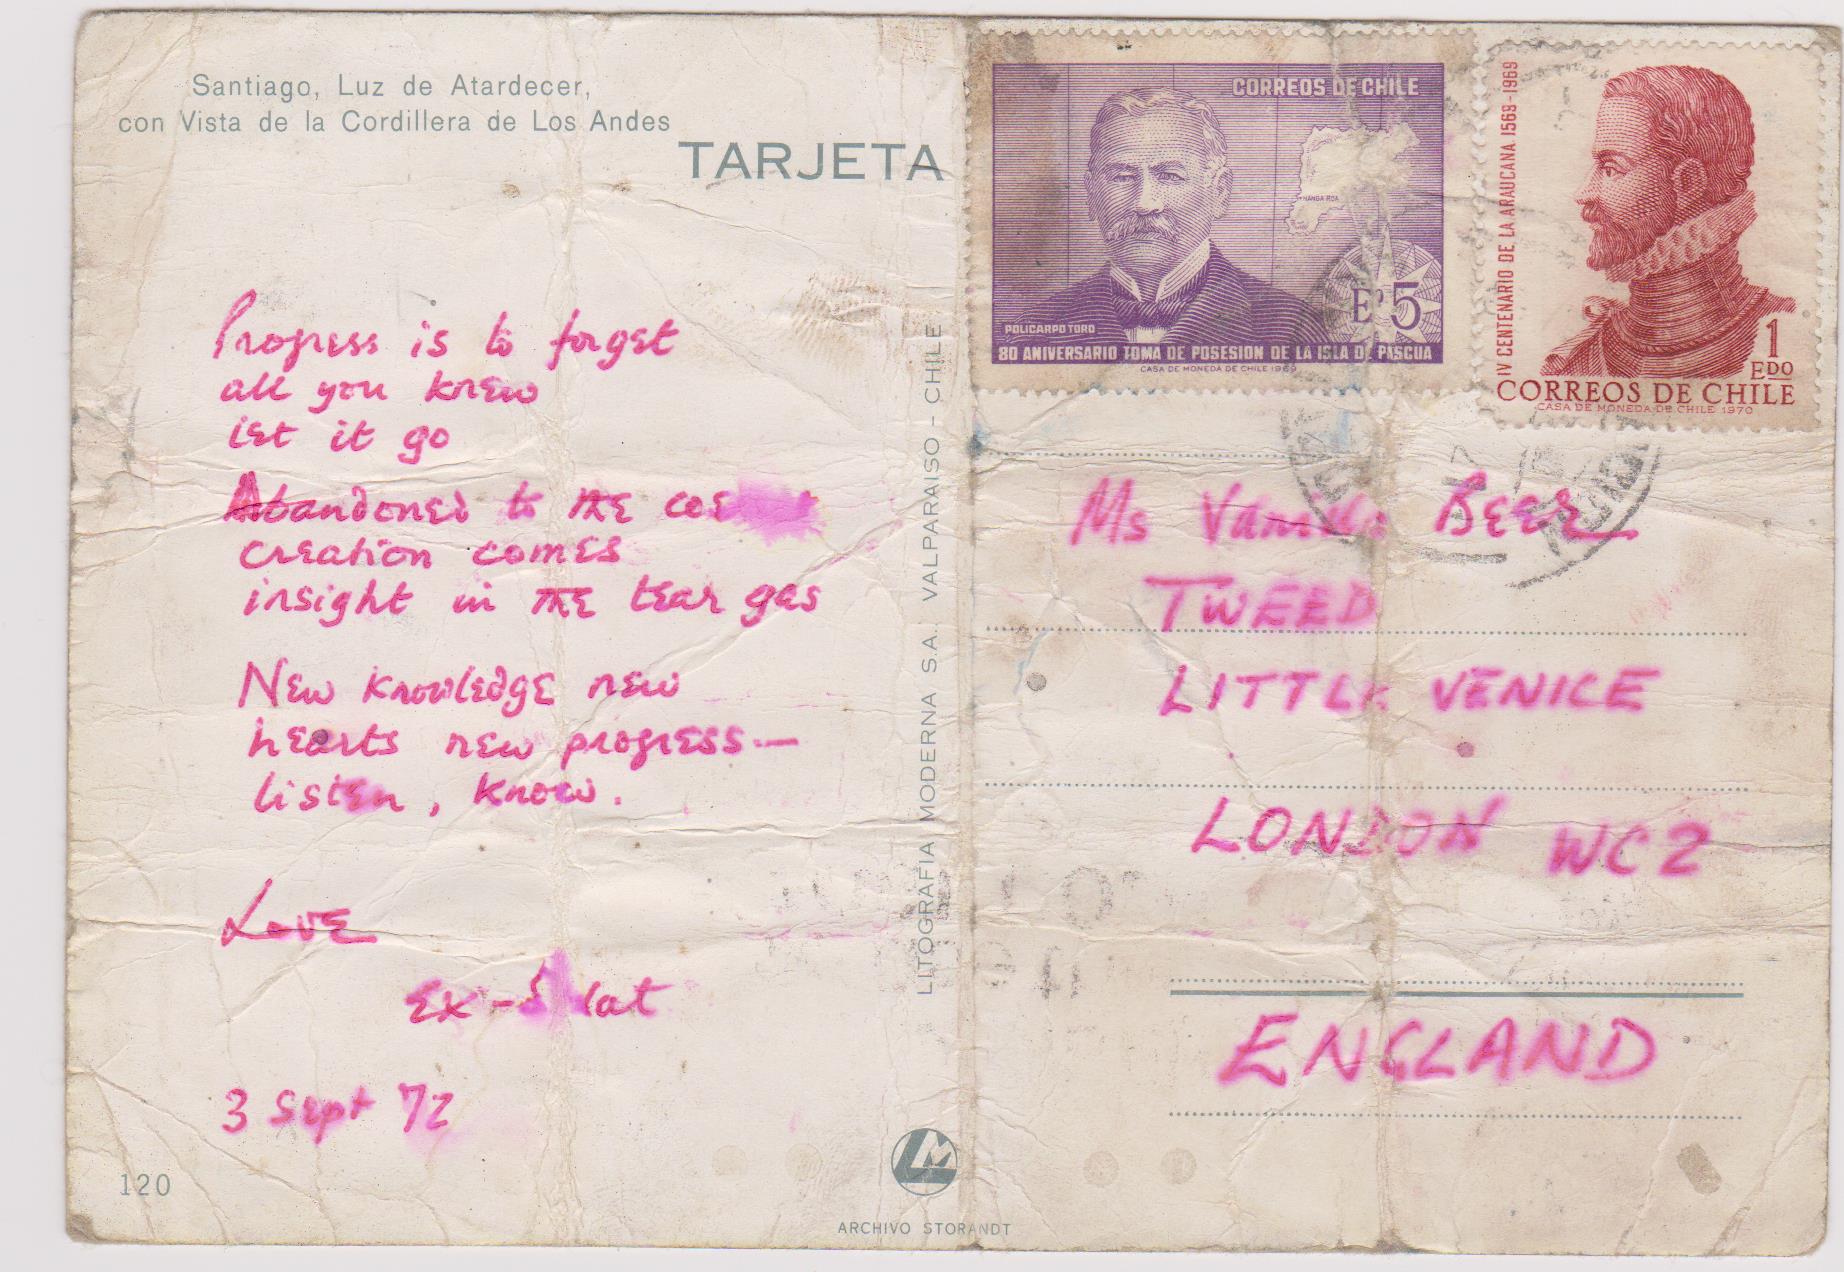 Santiago, Luz de Atardecer,
con Vista de la Cordillera de Los Andes
TARJETA
Progress is to forget
all you knew
let it go
Abandoned to the
creation comes
insight in the tear gas
New knowledge new
hearts new progress —
listen, know.
Love
3 Sept 72
120
LITOGRAFIA MODERNA S.A. VALPARAISO - CHILE
LM
ARCHIVO STORANDT
CORREOS DE CHILE
HANGA ROA
Eº 5
POLICARPO TORO
80 ANIVERSARIO TOMA DE POSESION DE LA ISLA DE PASCUA
CASA DE MONEDA DE CHILE 1969
IV CENTENARIO DE LA ARAUCANA 1569-1969
1
EDO
CORREOS DE CHILE
CASA DE MONEDA DE CHILE 1970
Ms Beer
TWEED
LITTLE VENICE
LONDON WC2
ENGLAND